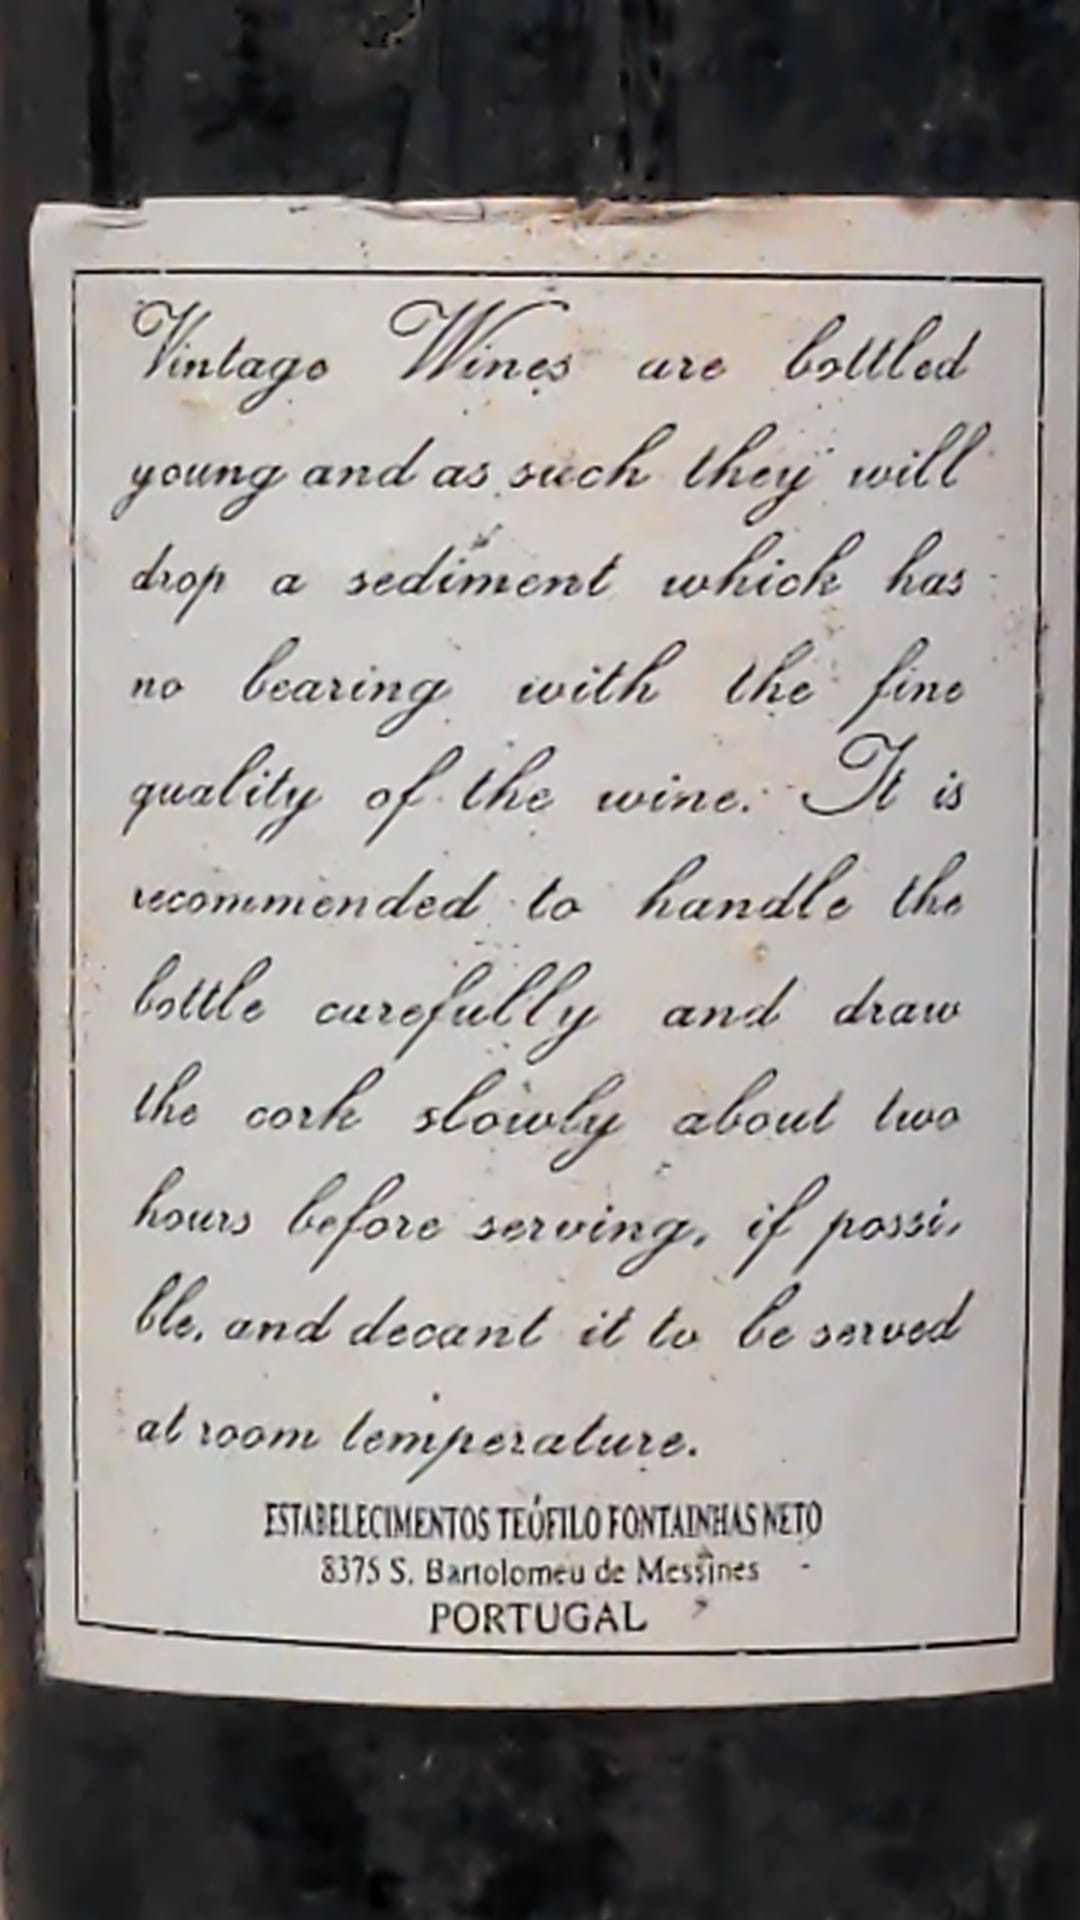 Vintage Wines are bottled
young and as such they will
drop a sediment which has
no bearing with the fine
quality of the wine. It is
recommended to handle the
bottle carefully and draw
the cork slowly about two
hours before serving, if possi-
ble, and decant it to be served
at room temperature.
ESTABELECIMENTOS TEÓFILO FONTAINHAS NETO
8375 S. Bartolomeu de Messines
PORTUGAL